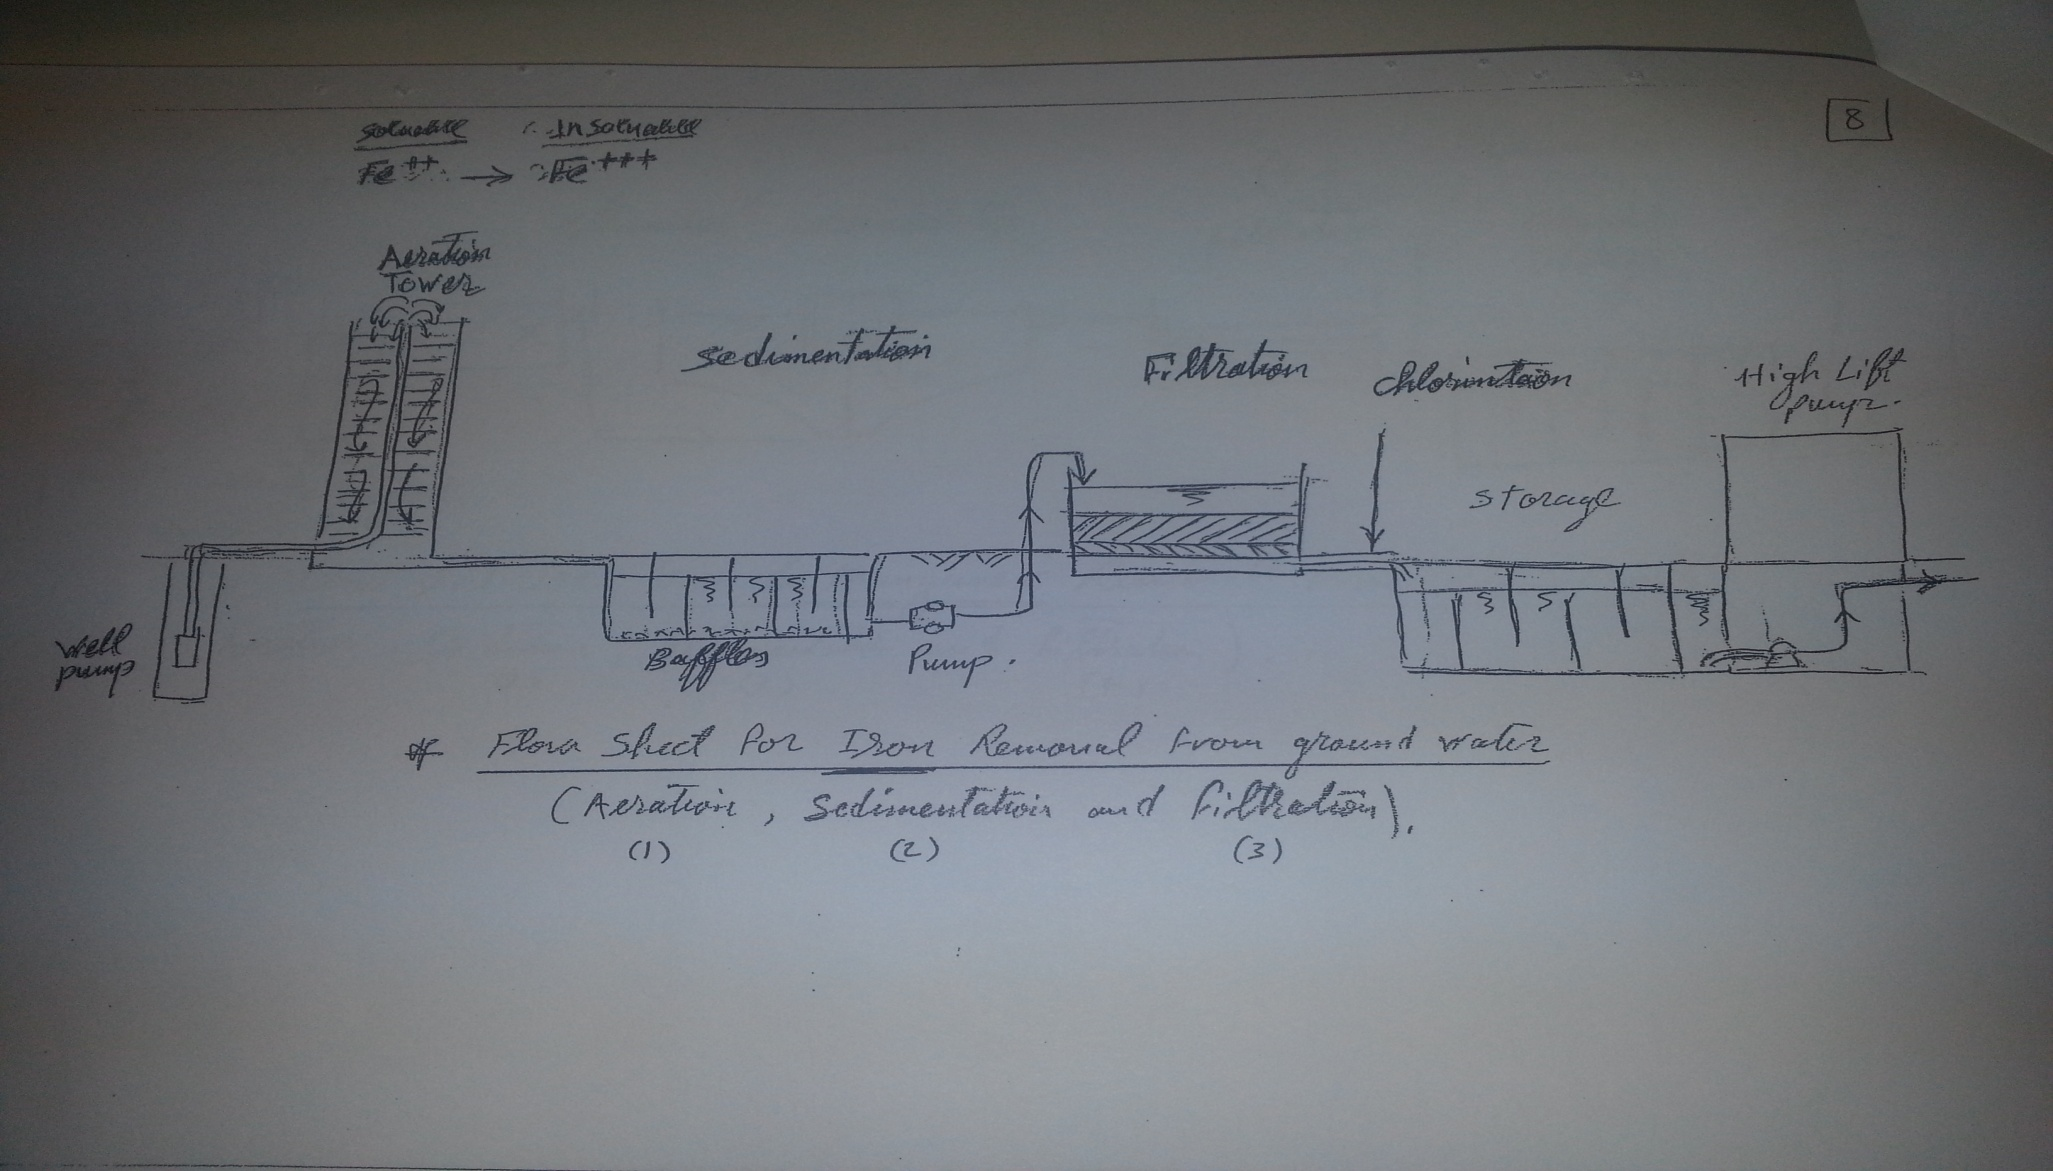 8
Soluable Insoluable
Fe++ → Fe+++
Aeration
Tower
Sedimentation
Filtration
Chlorintaion
High Lift
pump.
Storage
Well
pump
Baffles
Pump.
* Flow Sheet for Iron Removal from ground water
(Aeration, Sedimentation and filtration).
(1) (2) (3)